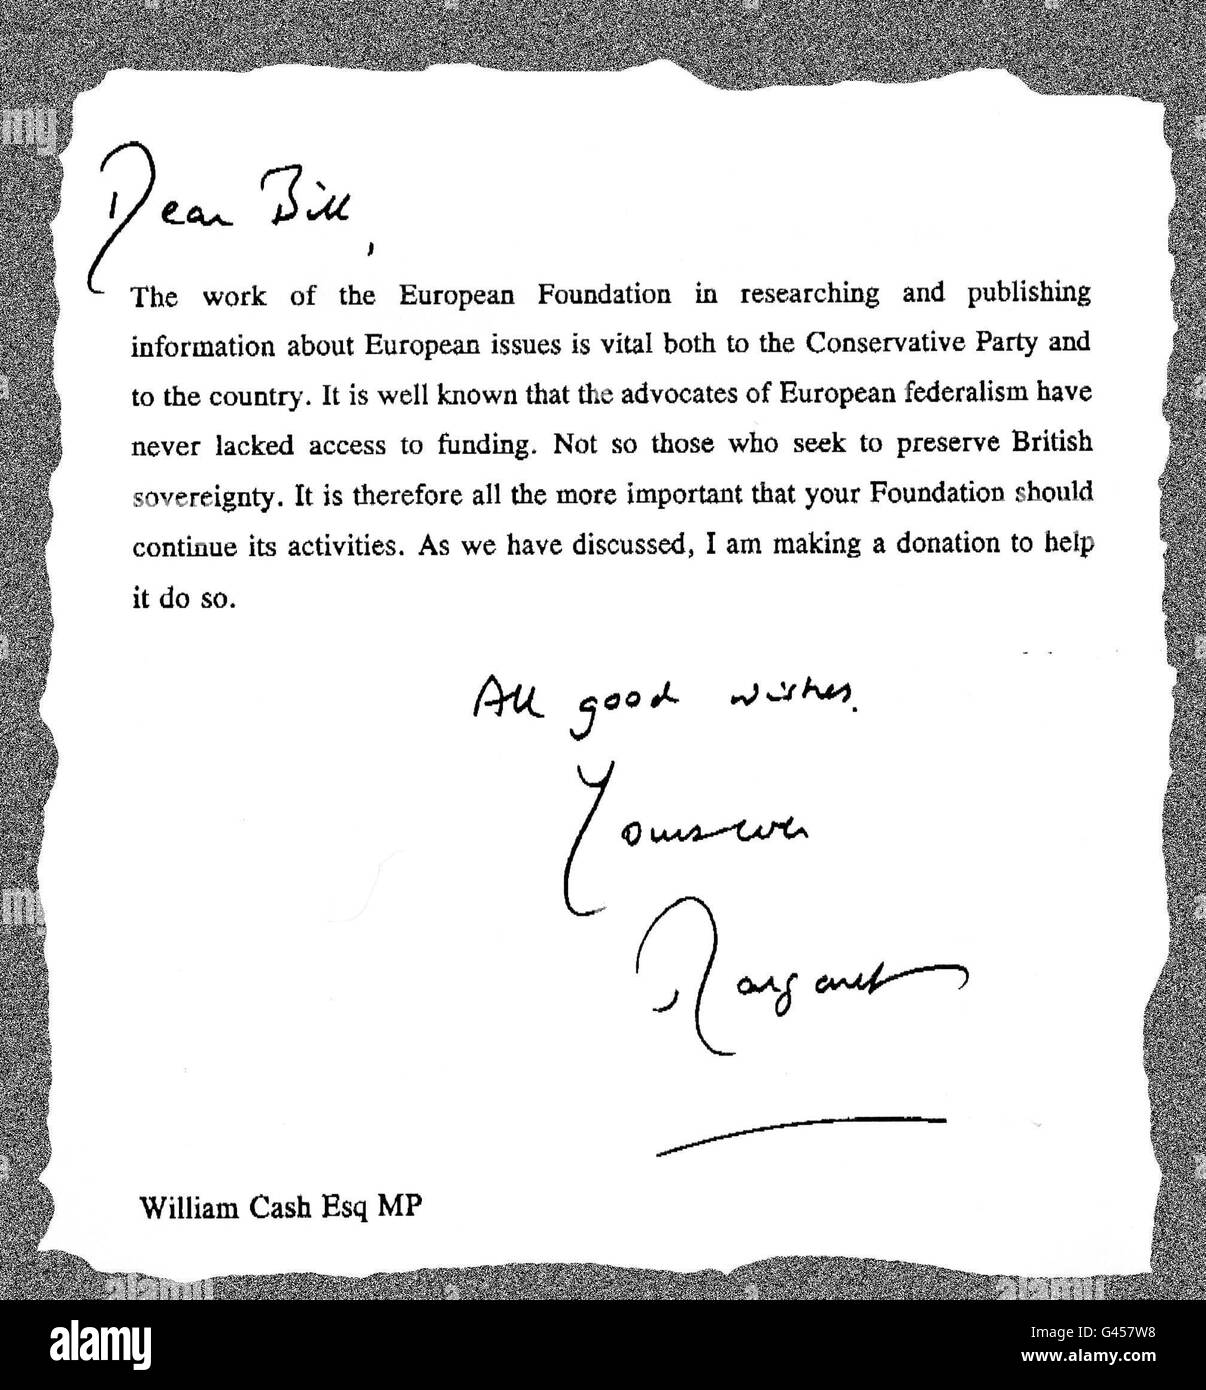 Dear Bill,
The work of the European Foundation in researching and publishing
information about European issues is vital both to the Conservative Party and
to the country. It is well known that the advocates of European federalism have
never lacked access to funding. Not so those who seek to preserve British
sovereignty. It is therefore all the more important that your Foundation should
continue its activities. As we have discussed, I am making a donation to help
it do so.
All good wishes.
Yours ever
Margaret
William Cash Esq MP
alamy stock photo
Image ID: G457W8
www.alamy.com